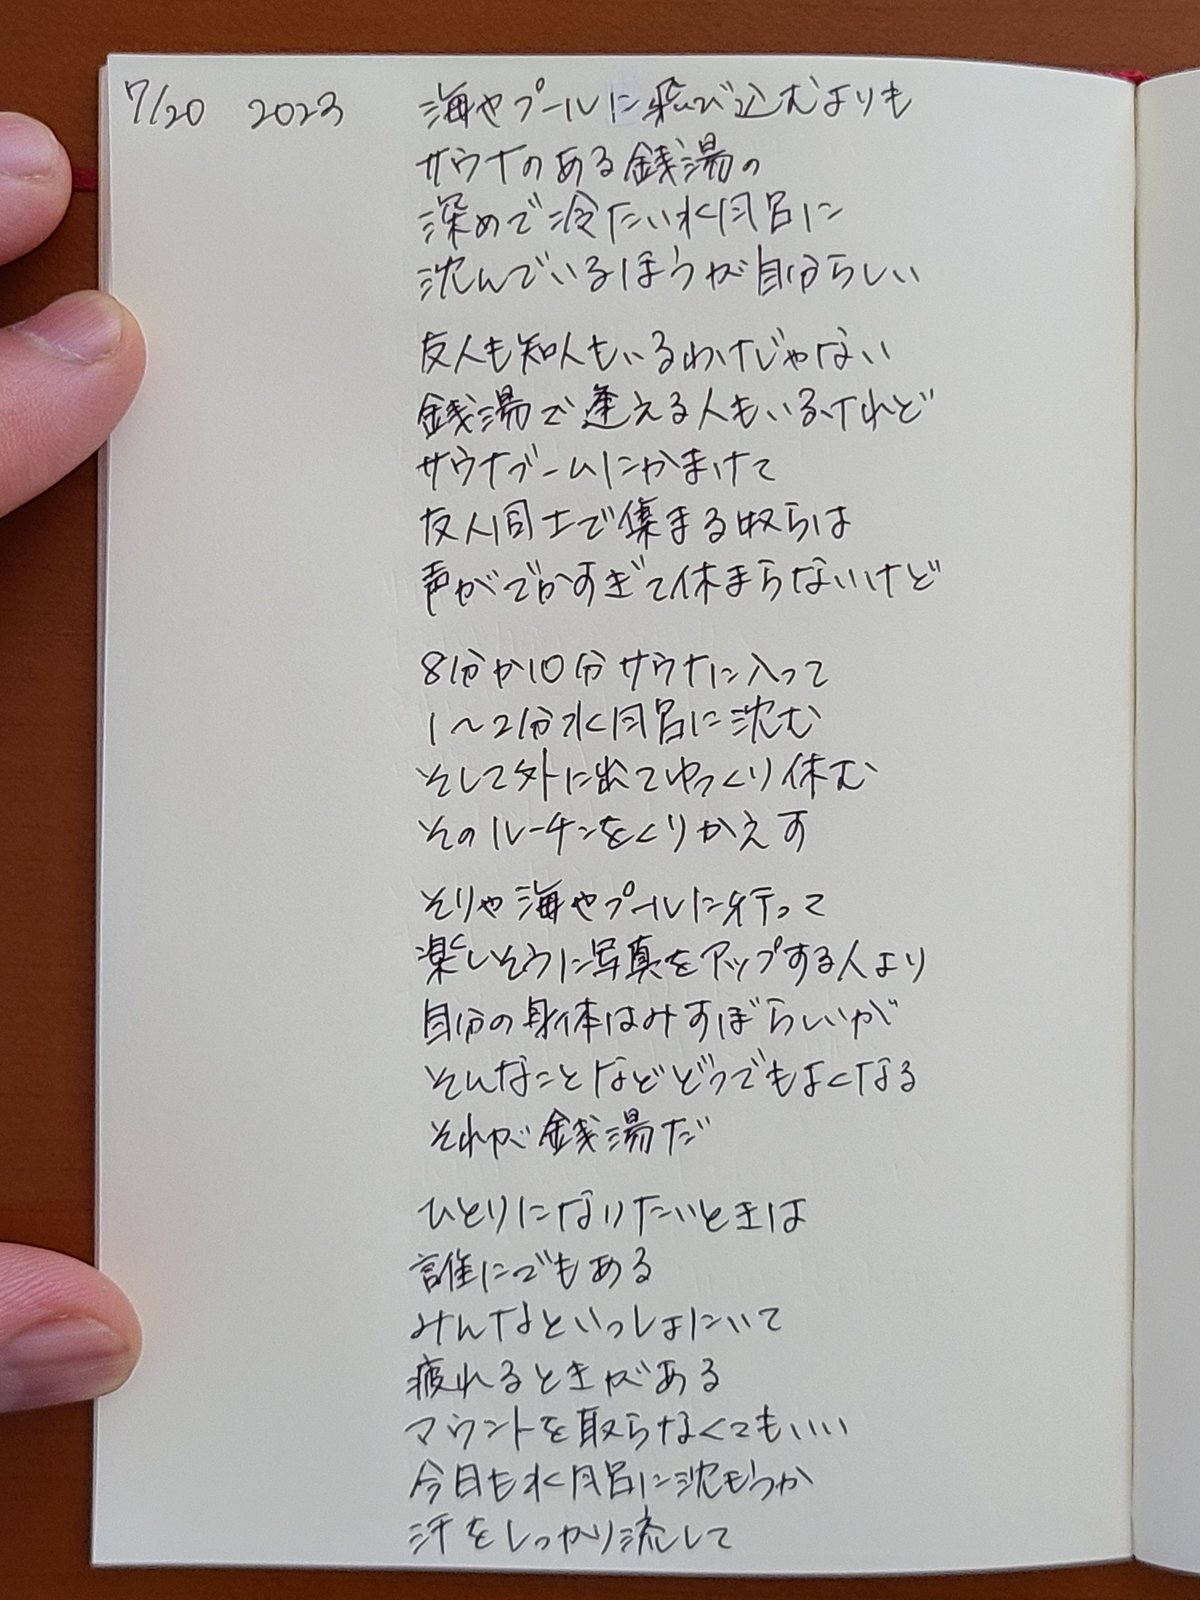 7/20 2023
海やプールに飛び込むよりも
サウナのある銭湯の
深めで冷たい水風呂に
沈んでいるほうが自分らしい
友人も知人もいるわけじゃない
銭湯で逢える人もいるけれど
サウナブームにかまけて
友人同士で集まる奴らは
声がでかすぎて休まらないけど
8分か10分サウナに入って
1〜2分水風呂に沈む
そして外に出てゆっくり休む
そのルーチンをくりかえす
そりゃ海やプールに行って
楽しそうに写真をアップする人より
自分の身体はみすぼらしいが
そんなことなどどうでもよくなる
それが銭湯だ
ひとりになりたいときは
誰にでもある
みんなといっしょにいて
疲れるときがある
マウントを取らなくてもいい
今日も水風呂に沈もうか
汗をしっかり流して